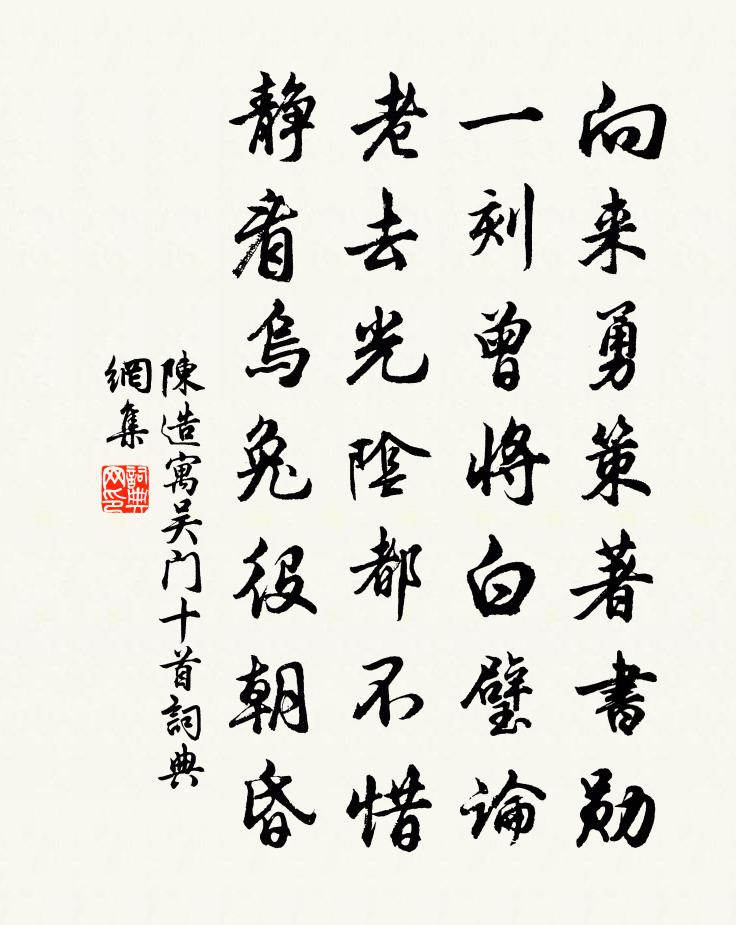 向来勇策著書勋
一刻曾將白璧論
老去光陰都不惜
静看烏兔役朝昏
陳造寓吴门十首詞典
網集
詞典網印